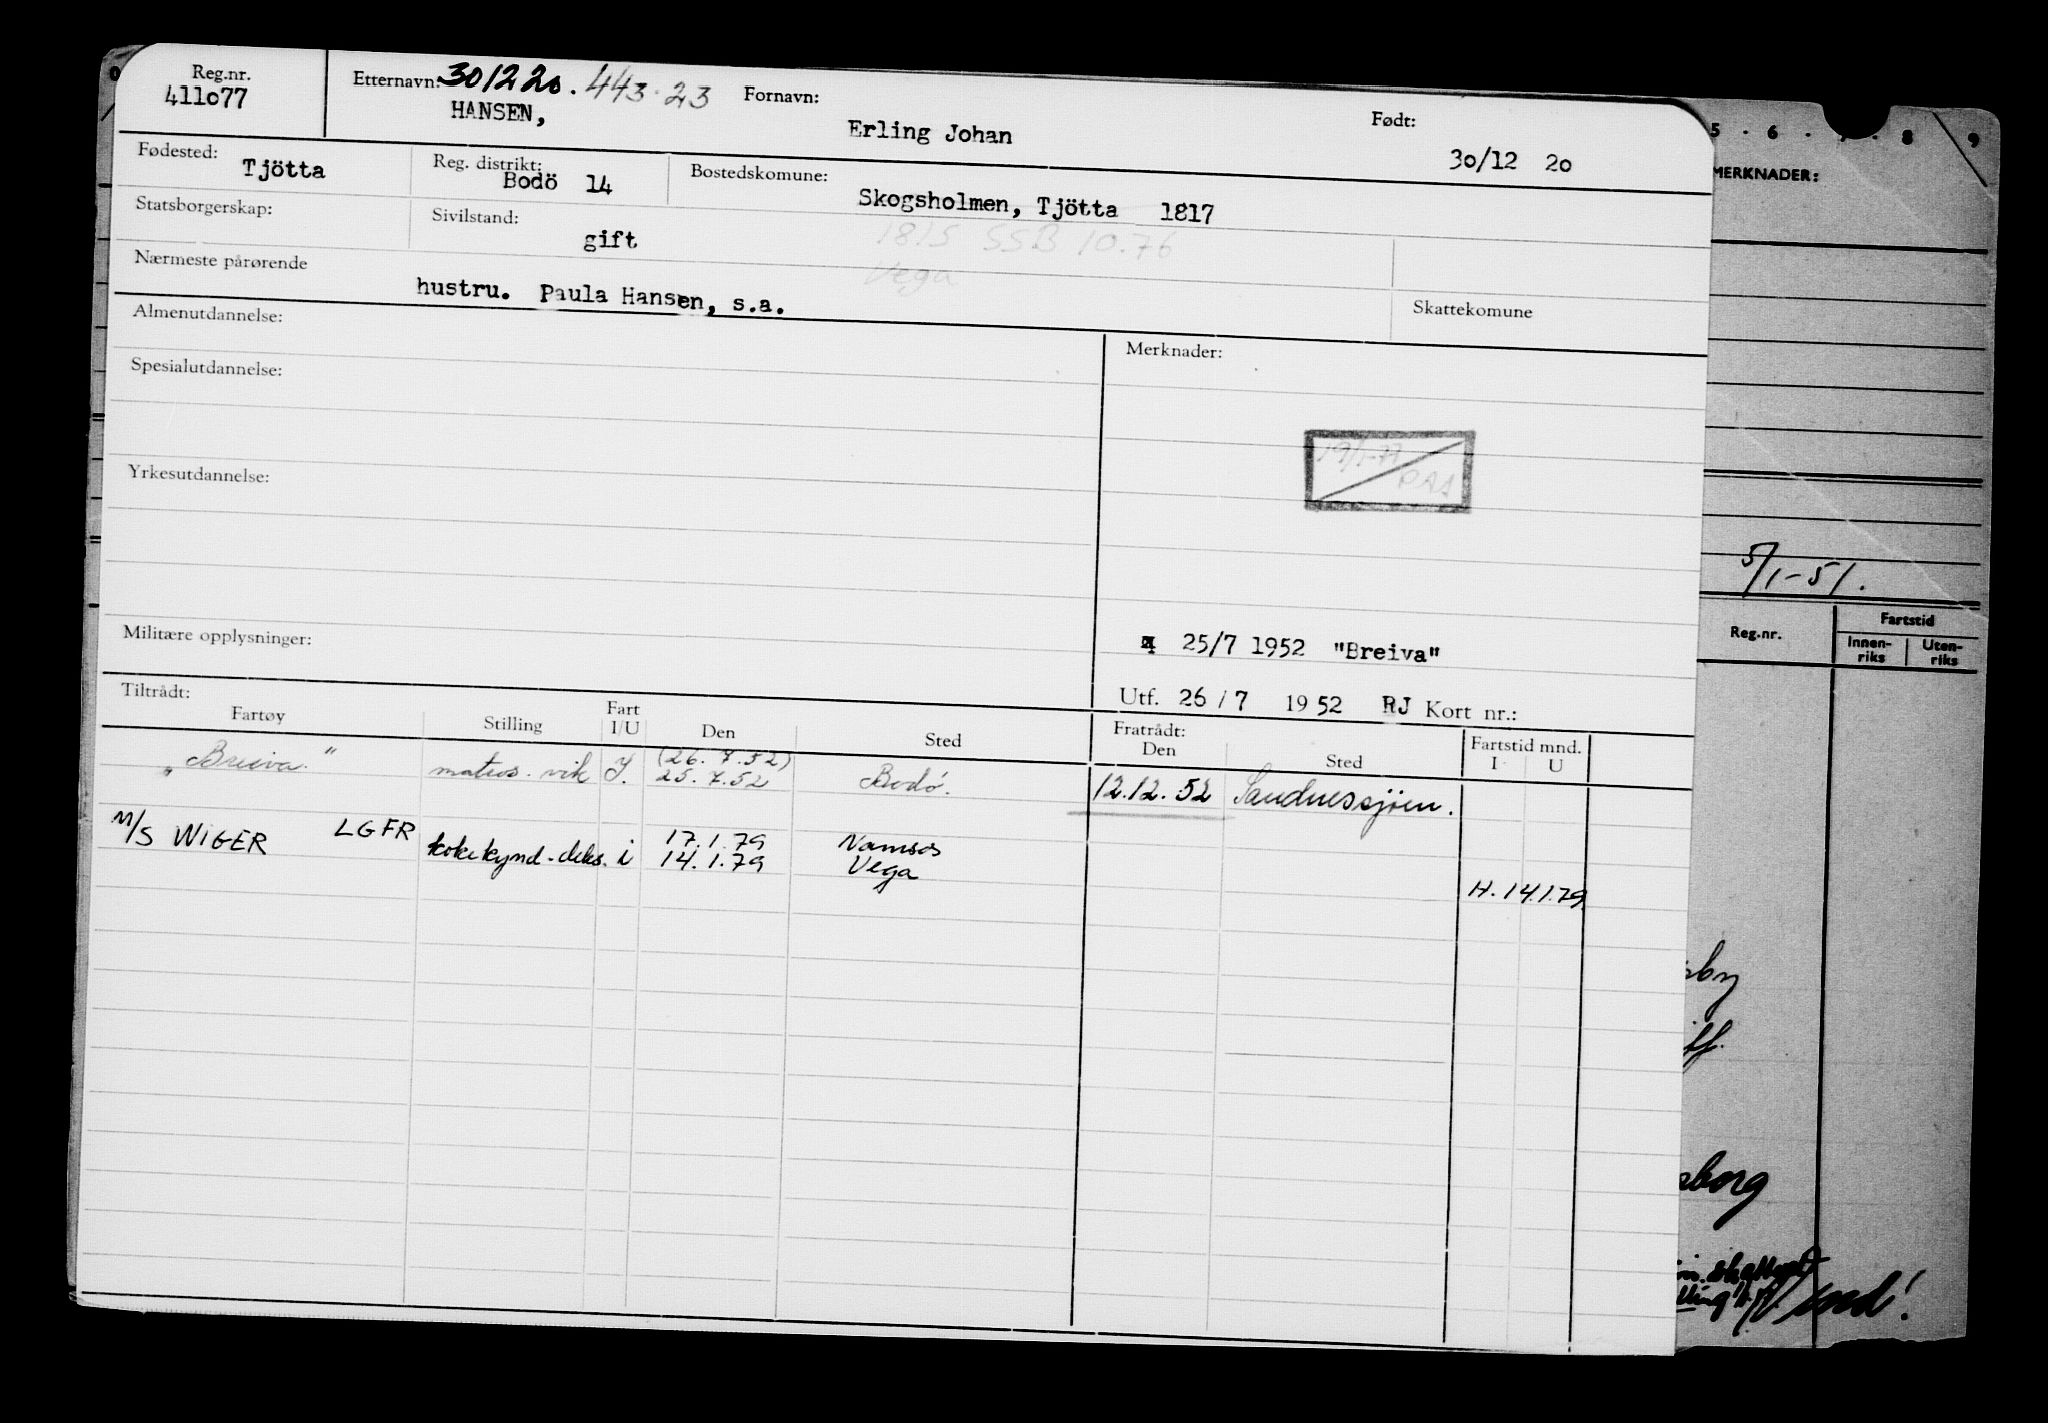 Reg.nr.
411o77
Etternavn: 301220. 44323
HANSEN,
Fornavn:
Erling Johan
Født:
30/12 20
Fødested:
Tjötta
Reg. distrikt:
Bodö 14
Bostedskomune:
Skogsholmen, Tjötta 1817
1815 SSB 10.76
Vega
Statsborgerskap:
Sivilstand:
gift
Nærmeste pårørende
hustru. Paula Hansen, s.a.
Skattekomune
Almenutdannelse:
Spesialutdannelse:
Yrkesutdannelse:
Militære opplysninger:
Merknader:
19/1-77
25/7 1952 "Breiva"
Utf. 26/7 1952 RJ Kort nr.:
Tiltrådt:
Fartøy Stilling Fart I/U Den Sted
Fratrådt:
Den Sted
Fartstid mnd.
I U
„Breiva." matros. vik I. (26.7.52)
25.7.52 Bodö. 12.12.52 Sandnessjöen.
M/S WIGER LGFR kokekynd-deks. i 17.1.79 Namsos
14.1.79 Vega
H. 14.1.79
5 · 6 · 7 · 8 9
MERKNADER:
5/1-51.
Reg.nr.
Fartstid
Innen-
riks
Uten-
riks